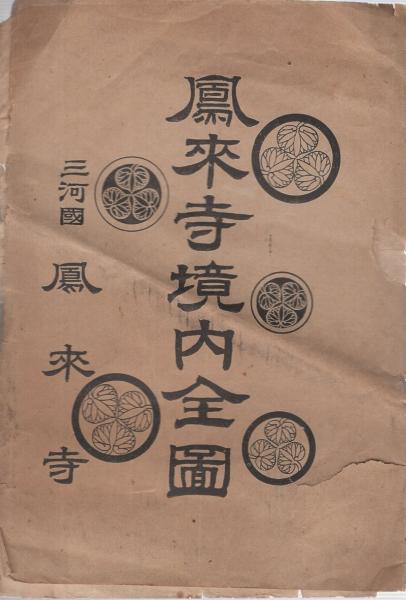 鳳來寺境内全圖
三河國
鳳來寺